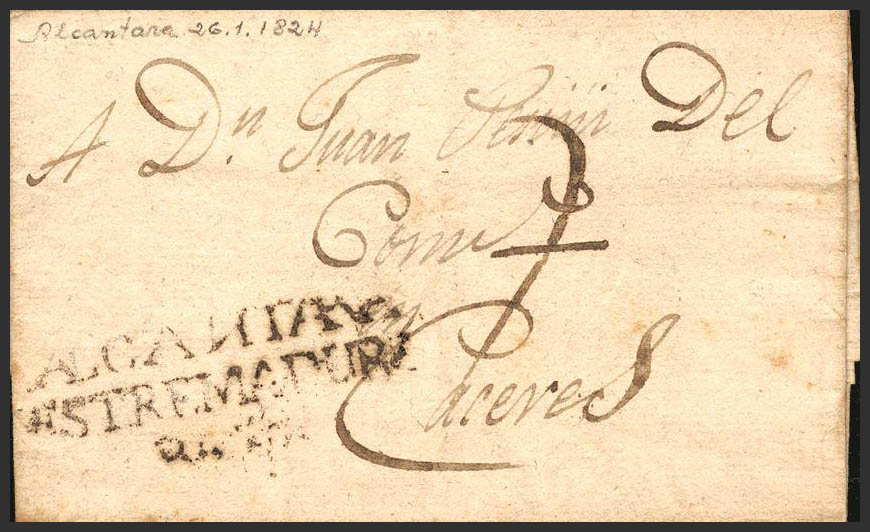 Alcantara 26.1.1824
A D.n Juan Del
Come
en
Caceres
7
ALCANTARA
ESTREMADURA